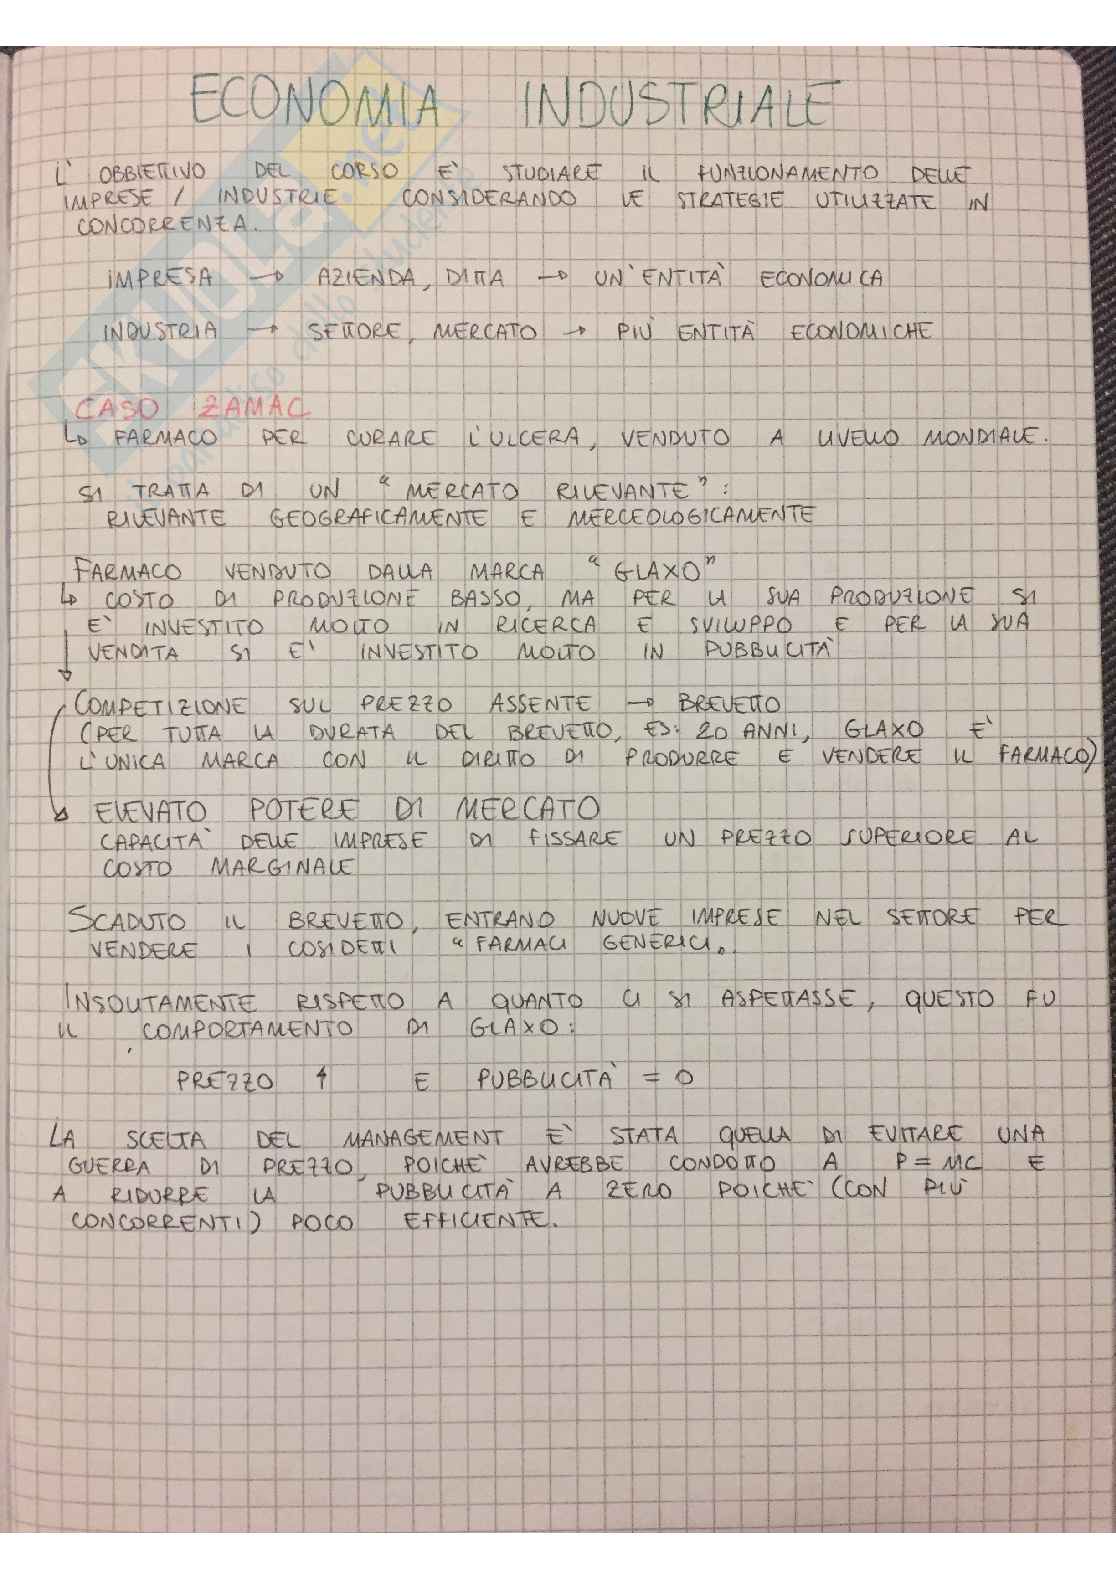 ECONOMIA INDUSTRIALE
L'OBBIETTIVO DEL CORSO E' STUDIARE IL FUNZIONAMENTO DELLE
IMPRESE / INDUSTRIE CONSIDERANDO LE STRATEGIE UTILIZZATE IN
CONCORRENZA.
IMPRESA → AZIENDA, DITTA → UN'ENTITÀ ECONOMICA
INDUSTRIA → SETTORE, MERCATO → PIÙ ENTITÀ ECONOMICHE
CASO ZAMAC
↳ FARMACO PER CURARE L'ULCERA, VENDUTO A LIVELLO MONDIALE.
SI TRATTA DI UN "MERCATO RILEVANTE":
RILEVANTE GEOGRAFICAMENTE E MERCEOLOGICAMENTE
FARMACO VENDUTO DALLA MARCA "GLAXO"
↳ COSTO DI PRODUZIONE BASSO, MA PER LA SUA PRODUZIONE SI
E' INVESTITO MOLTO IN RICERCA E SVILUPPO E PER LA SUA
VENDITA SI E' INVESTITO MOLTO IN PUBBLICITÀ
COMPETIZIONE SUL PREZZO ASSENTE → BREVETTO
(PER TUTTA LA DURATA DEL BREVETTO, ES: 20 ANNI, GLAXO E'
L'UNICA MARCA CON IL DIRITTO DI PRODURRE E VENDERE IL FARMACO)
↳ ELEVATO POTERE DI MERCATO
CAPACITA' DELLE IMPRESE DI FISSARE UN PREZZO SUPERIORE AL
COSTO MARGINALE
SCADUTO IL BREVETTO, ENTRANO NUOVE IMPRESE NEL SETTORE PER
VENDERE I COSIDETTI "FARMACI GENERICI".
INSOLITAMENTE RISPETTO A QUANTO CI SI ASPETTASSE, QUESTO FU
IL COMPORTAMENTO DI GLAXO:
PREZZO ↑ E PUBBLICITÀ = 0
LA SCELTA DEL MANAGEMENT E' STATA QUELLA DI EVITARE UNA
GUERRA DI PREZZO, POICHE' AVREBBE CONDOTTO A P = MC E
A RIDURRE LA PUBBLICITÀ A ZERO POICHE' (CON PIÙ
CONCORRENTI) POCO EFFICIENTE.
SKUOLA.net